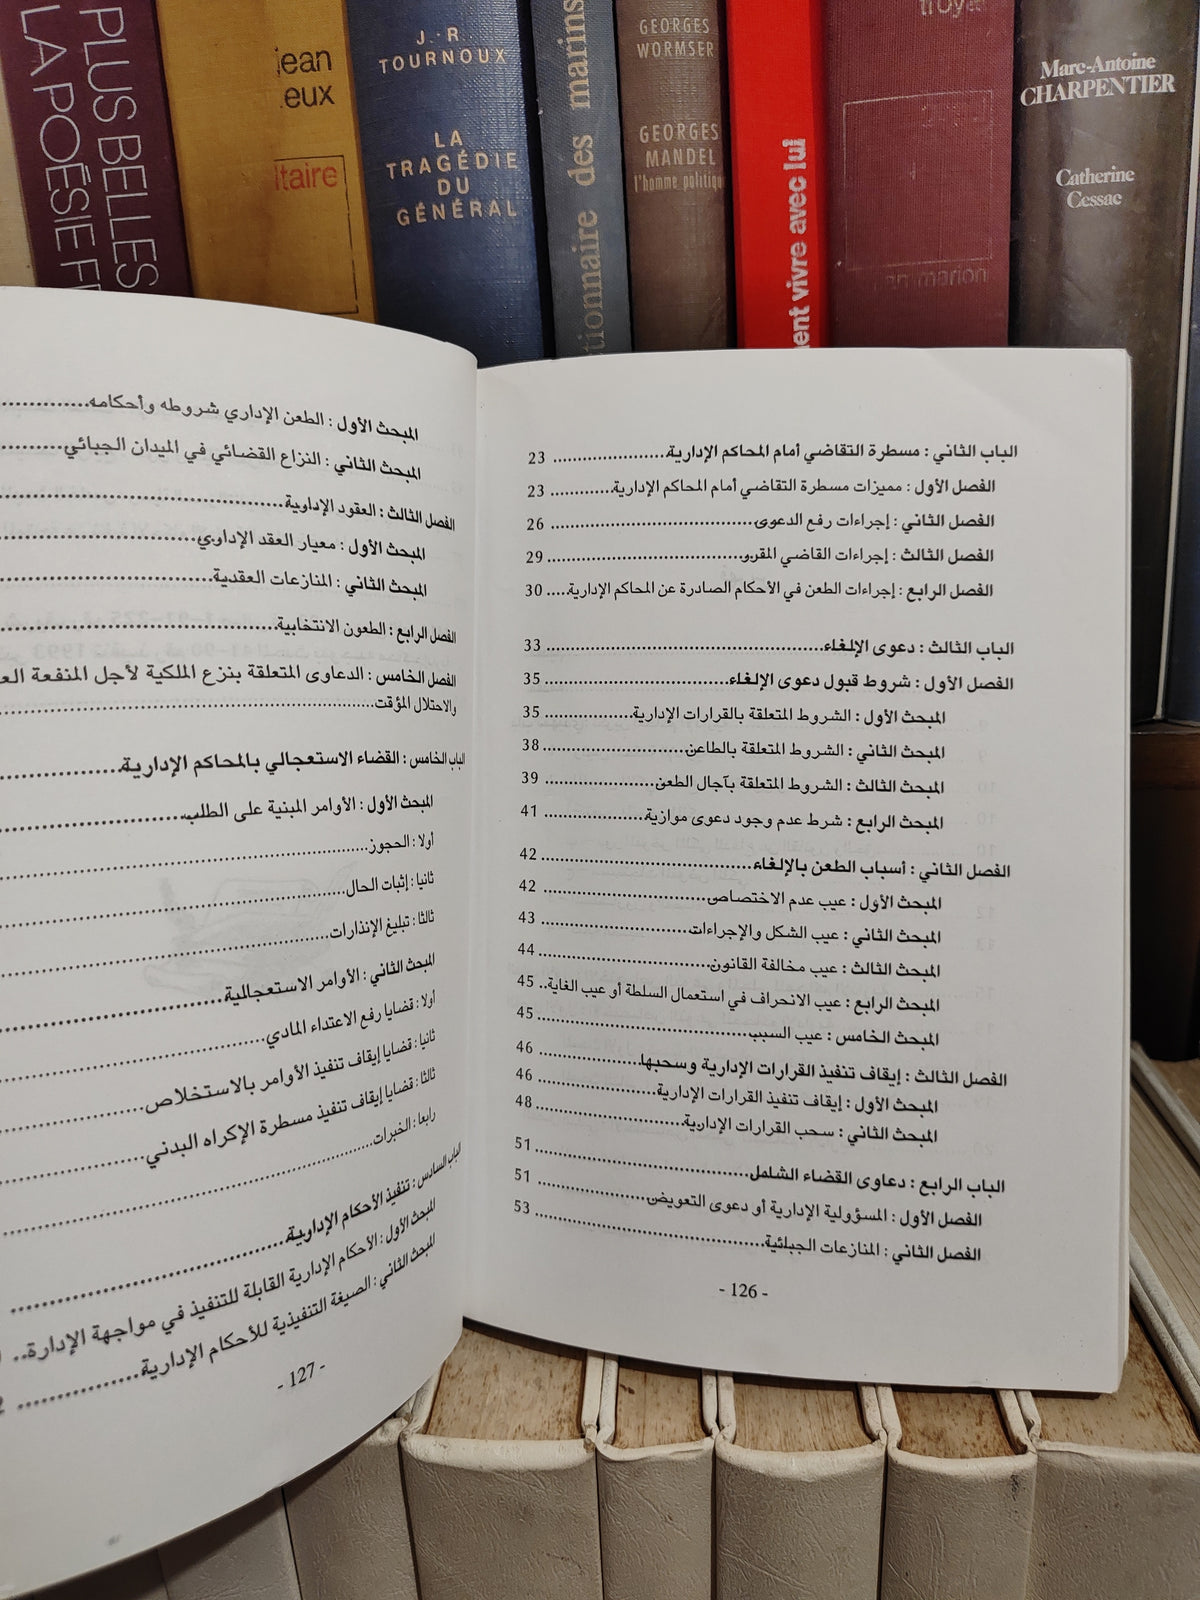 PLUS BELLES
LA POÉSIE
jean
eux
itaire
J.-R.
TOURNOUX
LA
TRAGÉDIE
DU
GÉNÉRAL
tionnaire des marins
GEORGES
WORMSER
GEORGES
MANDEL
l'homme politiqu
ment vivre avec lui
troyat
Marc-Antoine
CHARPENTIER
Catherine
Cessac
الباب الثاني : مسطرة التقاضي أمام المحاكم الإدارية .................... 23
الفصل الأول : مميزات مسطرة التقاضي أمام المحاكم الإدارية ........... 23
الفصل الثاني : إجراءات رفع الدعوى .................................. 26
الفصل الثالث : إجراءات القاضي المقرر .................................. 29
الفصل الرابع : إجراءات الطعن في الأحكام الصادرة عن المحاكم الإدارية ..... 30
الباب الثالث : دعوى الإلغاء .................................. 33
الفصل الأول : شروط قبول دعوى الإلغاء .................................. 35
المبحث الأول : الشروط المتعلقة بالقرارات الإدارية .................. 35
المبحث الثاني : الشروط المتعلقة بالطاعن ........................ 38
المبحث الثالث : الشروط المتعلقة بآجال الطعن .................... 39
المبحث الرابع : شرط عدم وجود دعوى موازية .................... 41
الفصل الثاني : أسباب الطعن بالإلغاء .................................. 42
المبحث الأول : عيب عدم الاختصاص .......................... 42
المبحث الثاني : عيب الشكل والإجراءات .......................... 43
المبحث الثالث : عيب مخالفة القانون .......................... 44
المبحث الرابع : عيب الانحراف في استعمال السلطة أو عيب الغاية .. 45
المبحث الخامس : عيب السبب .................................. 45
الفصل الثالث : إيقاف تنفيذ القرارات الإدارية وسحبها .................. 46
المبحث الأول : إيقاف تنفيذ القرارات الإدارية .................... 46
المبحث الثاني : سحب القرارات الإدارية .......................... 48
الباب الرابع : دعاوى القضاء الشامل .................................. 51
الفصل الأول : المسؤولية الإدارية أو دعوى التعويض .................. 51
الفصل الثاني : المنازعات الجبائية .................................. 53
- 126 -
المبحث الأول : الطعن الإداري شروطه وأحكامه ..............
المبحث الثاني : النزاع القضائي في الميدان الجبائي ..........
الفصل الثالث : العقود الإدارية ..............................
المبحث الأول : معيار العقد الإداري ........................
المبحث الثاني : المنازعات العقدية ........................
الفصل الرابع : الطعون الانتخابية ..............................
الفصل الخامس : الدعاوى المتعلقة بنزع الملكية لأجل المنفعة الع
والاحتلال المؤقت ..............................
الباب الخامس : القضاء الاستعجالي بالمحاكم الإدارية ..............
المبحث الأول : الأوامر المبنية على الطلب ..................
أولا : الحجوز ..............................
ثانيا : إثبات الحال ..............................
ثالثا : تبليغ الإنذارات ..............................
المبحث الثاني : الأوامر الاستعجالية ..................
أولا : قضايا رفع الاعتداء المادي ..................
ثانيا : قضايا إيقاف تنفيذ الأوامر بالاستخلاص ..............
ثالثا : قضايا إيقاف تنفيذ مسطرة الإكراه البدني ..............
رابعا : الخبرات ..............................
الباب السادس : تنفيذ الأحكام الإدارية ..............................
المبحث الأول : الأحكام الإدارية القابلة للتنفيذ في مواجهة الإدارة ..
المبحث الثاني : الصيغة التنفيذية للأحكام الإدارية ..............
- 127 -